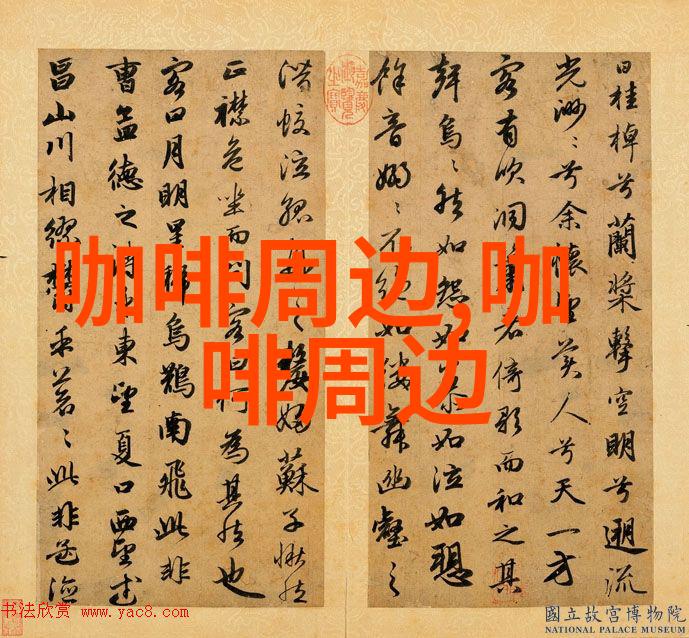 曰桂棹兮蘭槳擊空明兮遡流
光渺〻兮余懷望美人兮天一方
客有吹洞簫者倚歌而和之其
聲烏〻然如怨如慕如泣如愬
餘音嫋〻不絕如縷舞幽壑之
潛蛟泣孤舟之嫠婦蘇子愀然
正襟危坐而問客曰何為其然也
客曰月明星稀烏鵲南飛此非
曹孟德之詩乎東望夏口西望武
昌山川相繆鬱乎蒼〻此非孟德
嘉慶御覽之寶
咖啡周边,咖
啡周边
书法欣赏 www.yac8.com
國立故宮博物院
NATIONAL PALACE MUSEUM